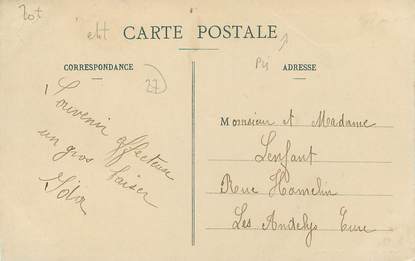 CARTE POSTALE
CORRESPONDANCE
27
Souvenir affectueux
un gros baiser
Ida
ADRESSE
Monsieur et Madame
Lenfant
Rue Hamelin
Les Andelys Eure